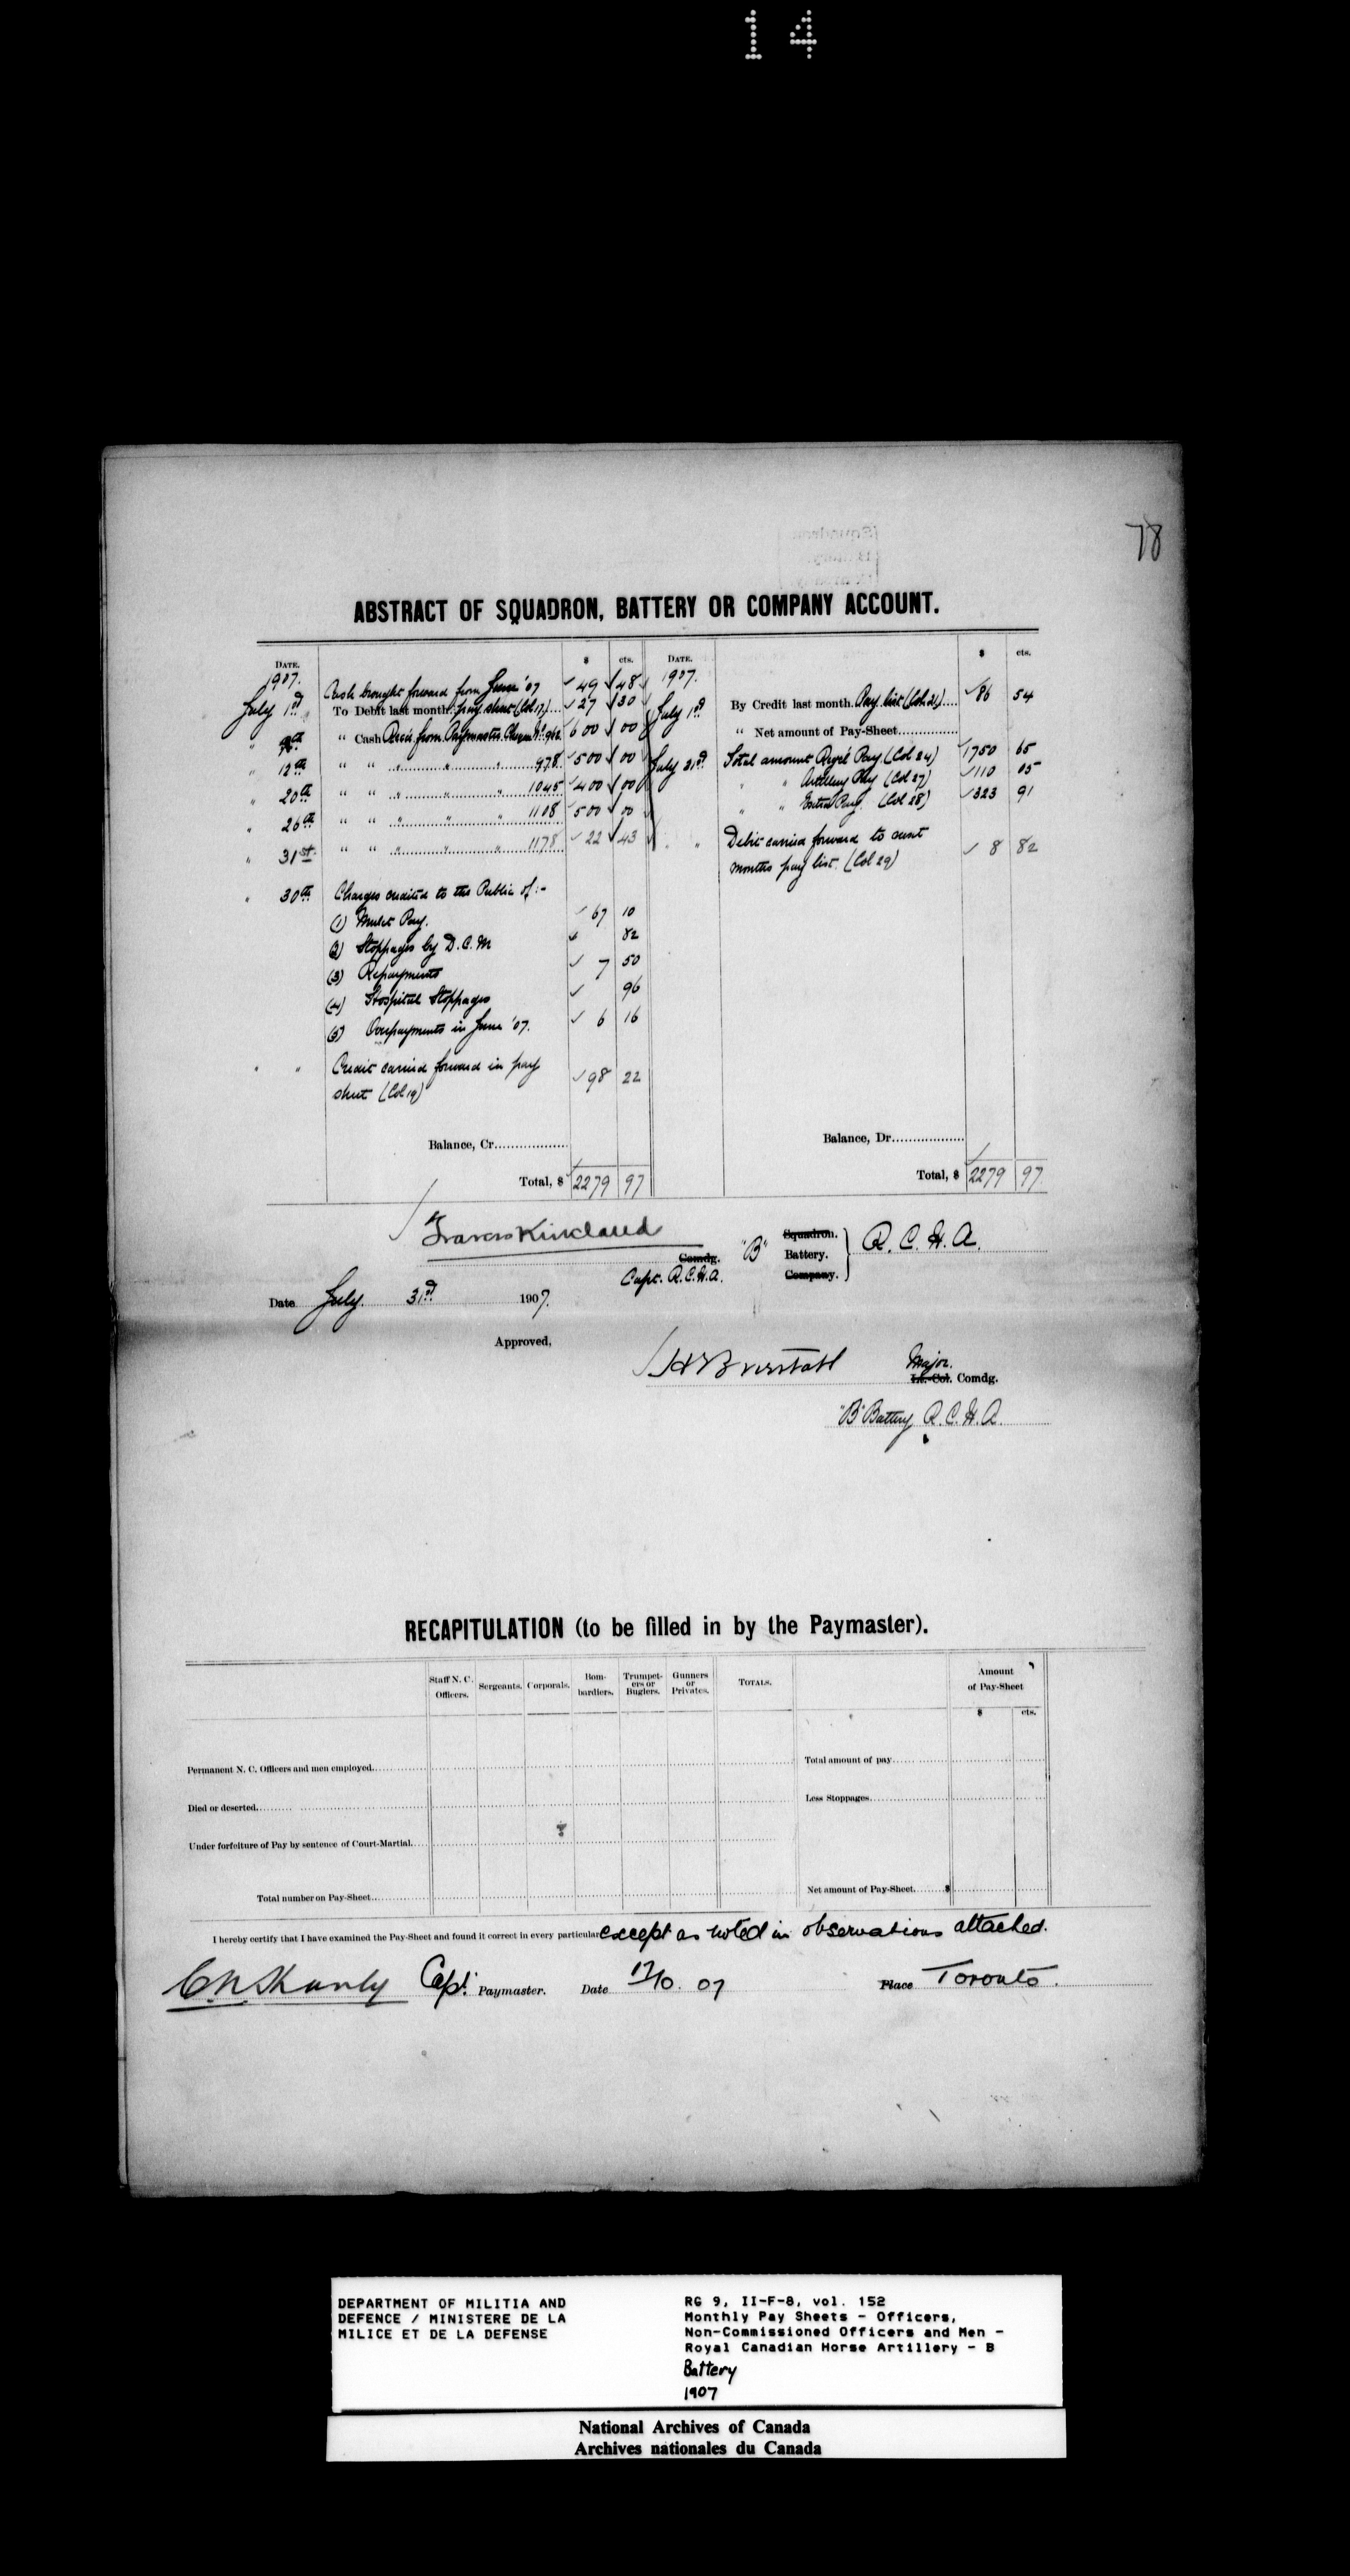 14
78
ABSTRACT OF SQUADRON, BATTERY OR COMPANY ACCOUNT.
DATE. $ cts. DATE. $ cts.
1907. Cash brought forward from June '07 49 48 1907.
July 1st To Debit last month. pay sheet (Col 17) 27 30 July 1st By Credit last month. Pay list (Col. 21) 86 54
" 9th " Cash Recd. from Paymaster Cheque No. 962 600 00 " Net amount of Pay-Sheet
" 12th " " " " " 978 500 00 July 31st Total amount Regt'l Pay (Col 24) 1750 65
" 20th " " " " " 1045 400 00 " " Artillery Pay (Col 27) 110 05
" 26th " " " " " 1108 500 00 " " Extra Pay. (Col 28) 323 91
" 31st " " " " " 1178 22 43 " " Debit carried forward to next
months pay list. (Col 29) 8 82
" 30th Charges credited to the Public of :-
(1) Mulct Pay. 67 10
(2) Stoppages by D. C. M 82
(3) Repayments 7 50
(4) Hospital Stoppages 96
(5) Overpayments in June '07. 6 16
" " Credit carried forward in pay
sheet (Col 19) 98 22
Balance, Cr. Balance, Dr.
Total, $ 2279 97 Total, $ 2279 97
Kirkland
Comdg. "B" Squadron. Battery. Company. R. C. H. A.
Capt. R.C.H.A.
Date July 31st 1907.
Approved,
Major.
Lt.-Col. Comdg.
"B" Battery R. C. H. A.
RECAPITULATION (to be filled in by the Paymaster).
Staff N. C. Officers. Sergeants. Corporals. Bom-bardiers. Trumpet-ers or Buglers. Gunners or Privates. TOTALS. Amount of Pay-Sheet
$ cts.
Permanent N. C. Officers and men employed. Total amount of pay
Died or deserted. Less Stoppages
Under forfeiture of Pay by sentence of Court-Martial.
Total number on Pay-Sheet. Net amount of Pay-Sheet. $
I hereby certify that I have examined the Pay-Sheet and found it correct in every particular except as noted in observations attached.
C. N. Shanly Capt. Paymaster. Date 17/10. 07 Place Toronto.
DEPARTMENT OF MILITIA AND
DEFENCE / MINISTERE DE LA
MILICE ET DE LA DEFENSE
RG 9, II-F-8, vol. 152
Monthly Pay Sheets - Officers,
Non-Commissioned Officers and Men -
Royal Canadian Horse Artillery - B
Battery
1907
National Archives of Canada
Archives nationales du Canada